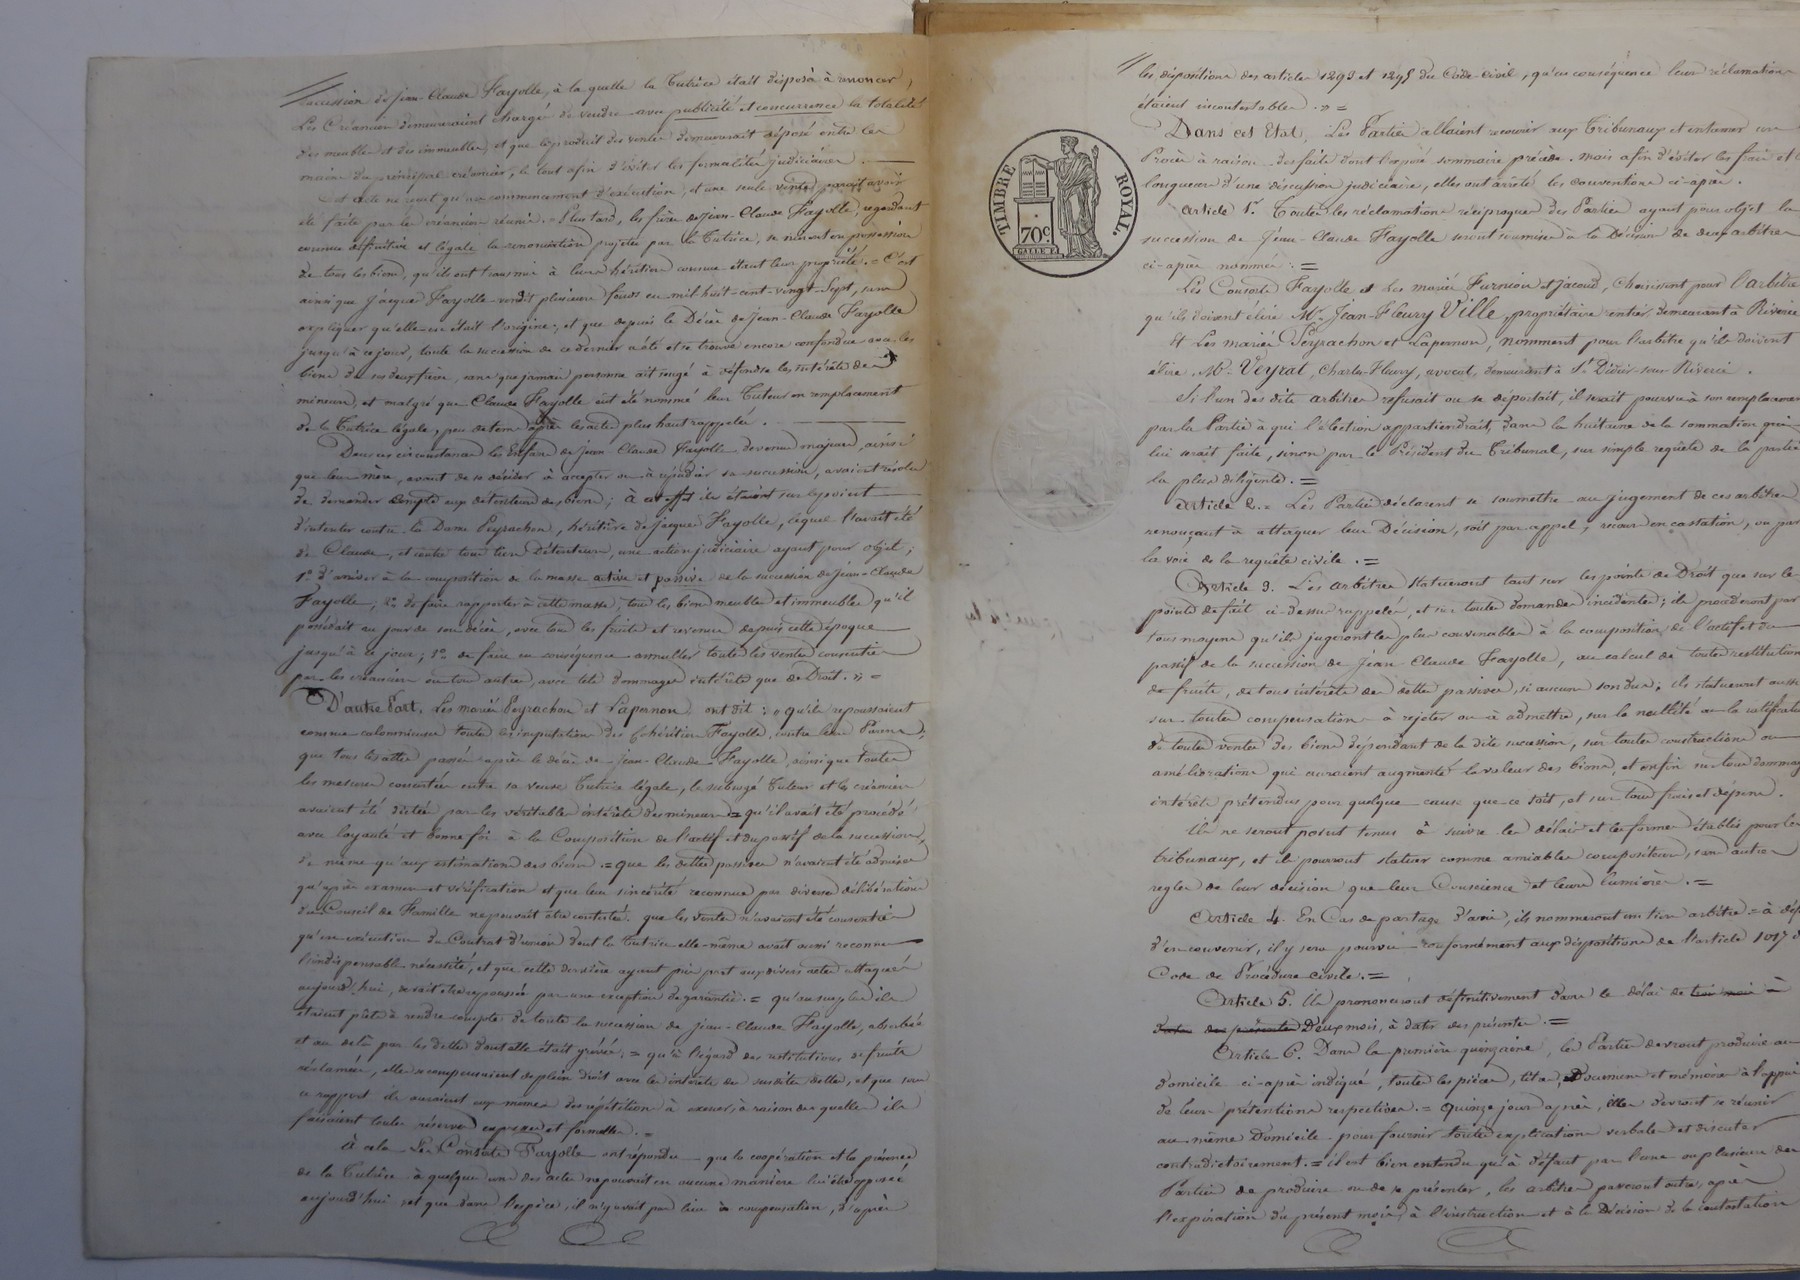 succession de Jean-Claude Fayolle, à la quelle la Tutrice était disposée à renoncer,
Les Créanciers demeureraient chargés de vendre avec publicité et concurrence la totalité
des meubles et des immeubles, et que le produit des ventes demeurerait déposé entre les
mains du principal créancier, le tout afin d'éviter les formalités judiciaires.
Cet acte ne reçut qu'un commencement d'exécution, et une seule vente paraît avoir
été faite par les créanciers réunis. Plus tard, les frères de Jean-Claude Fayolle, regardant
comme définitive et légale la renonciation projetée par la Tutrice, se mirent en possession
de tous les biens, qu'ils ont transmis à leurs héritiers comme étant leur propriété. = C'est
ainsi que Jacques Fayolle vendit plusieurs fonds en mil-huit-cent-vingt-sept, sans
expliquer qu'elle en était l'origine; et que depuis le Décès de Jean-Claude Fayolle
jusqu'à ce jour, toute la succession de ce dernier a été et se trouve encore confondue avec les
biens de ses deux frères, sans que jamais personne ait songé à défendre les intérêts des
mineurs, et malgré que Claude Fayolle eût été nommé leur Tuteur en remplacement
de la Tutrice légale, peu de tems après les actes plus haut rappelés.
Dans ces circonstances les Enfans de Jean-Claude Fayolle devenus majeurs, ainsi
que leur mère, avant de se décider à accepter ou à répudier sa succession, avaient résolu
de demander compte aux détenteurs des biens; à cet effet ils étaient sur le point
d'intenter contre la Dame Peyrachon, héritière de Jacques Fayolle, lequel l'avait été
de Claude, et contre tous tiers Détenteurs, une action judiciaire ayant pour objet;
1° d'arriver à la composition de la masse active et passive de la succession de Jean-Claude
Fayolle; 2° de faire rapporter à cette masse, tous les biens meubles et immeubles qu'il
possédait au jour de son décès, avec tous les fruits et revenus depuis cette époque
jusqu'à ce jour; 3° de faire en conséquence annuller toutes les ventes consenties
par les créanciers ou tous autres, avec tels dommages intérêts que de Droit. » =
D'autre Part, Les mariés Peyrachon et Lapernon, ont dit: « qu'ils repoussaient
comme calomnieuses toutes les imputations des Cohéritiers Fayolle, contre leur
que tous les actes passés après le décès de Jean-Claude Fayolle, ainsi que toutes
les mesures concertées entre sa veuve Tutrice légale, le subrogé Tuteur et les créanciers
avaient été dictées par les véritables intérêts des mineurs = qu'il avait été procédé
avec loyauté et bonne foi à la Composition de l'actif et du passif de la succession,
de même qu'aux estimations des biens = que les dettes passives n'avaient été admises
qu'après examen et vérification et que leur sincérité reconnue par diverses délibérations
du Conseil de Famille ne pouvait être contestée. que les ventes n'avaient été consenties
qu'en exécution du Contrat d'union dont la Tutrice elle-même avait aussi reconnu
l'indispensable nécessité, et que cette dernière ayant pris part aux divers actes attaqués
aujourd'hui, serait être repoussée par une exception de garantie. = qu'au surplus ils
étaient prêts à rendre compte de toute la succession de Jean-Claude Fayolle, absorbée
et au delà par les dettes dont elle était grévée; = qu'à l'égard des restitutions de fruits
réclamées, elles se compensaient de plein droit avec les intérêts des susdites dettes, et que sous
ce rapport ils auraient eux mêmes des répétitions à exercer, à raison des quelles ils
faisaient toutes réserves expresses et formelles. =
À cela Les Consorts Fayolle ont répondu que la coopération et la présence
de la Tutrice à quelques uns des actes ne pouvait en aucune manière lui être opposée
aujourd'hui et que dans l'espèce, il n'y avait pas lieu à compensation, d'après
les dispositions des articles 1293 et 1295 du Code-Civil, qu'en conséquence leurs réclamations
étaient incontestables. » =
Dans cet Etat, Les Parties allaient recourir aux Tribunaux et entamer un
Procès à raison des faits dont l'exposé sommaire précède. mais afin d'éviter les frais et
longueurs d'une discussion judiciaire, elles ont arrêté les conventions ci-après.
Article 1er. Toutes les réclamations réciproques des Parties ayant pour objet la
succession de Jean-Claude Fayolle seront soumises à la Décision de deux arbitres
ci-après nommés. =
Les Consorts Fayolle et les mariés Furnion et Jacoud, choisissent pour l'arbitre
qu'ils doivent élire Mr. Jean-Fleury Ville, propriétaire rentier, demeurant à Riverie
Et Les mariés Peyrachon et Lapernon, nomment pour l'arbitre qu'ils doivent
élire, Mr. Veyrat, Charles-Fleury, avocat, demeurant à St. Didier-sous-Riverie.
Si l'un des dits arbitres refusait ou se déportait, il serait pourvu à son remplacement
par la Partie à qui l'élection appartiendrait, dans la huitaine de la sommation qui
lui serait faite, sinon par le Président du Tribunal, sur simple requête de la partie
la plus diligente. =
Article 2. = Les Parties déclarent se soumettre au jugement de ces arbitres
renonçant à attaquer leur Décision, soit par appel, recours en cassation, ou par
la voie de la requête civile. =
Article 3. Les arbitres statueront tant sur les points de Droit que sur les
points de fait ci-dessus rappelés, et sur toutes demandes incidentes; ils procéderont par
tous moyens qu'ils jugeront les plus convenables à la composition de l'actif et du
passif de la succession de Jean Claude Fayolle, au calcul de toutes restitutions
de fruits, de tous intérêts de dettes passives, si aucuns sont dus; ils statueront aussi
sur toutes compensations à rejeter ou à admettre, sur la nullité ou la ratification
de toutes ventes des biens dépendant de la dite succession, sur toutes constructions ou
améliorations qui auraient augmenté la valeur des biens, et enfin sur tous dommages
intérêts prétendus pour quelque cause que ce soit, et sur tous frais et dépens.
Ils ne seront point tenus à suivre les délais et les formes établis pour les
tribunaux, et ils pourront statuer comme amiables compositeurs, sans autres
règles de leur décision que leur Conscience et leurs lumières. =
Article 4. En Cas de partage d'avis, ils nommeront un tiers arbitre = à défaut
d'en convenir, il y sera pourvu conformément aux dispositions de l'article 1017 du
Code de Procédure Civile. =
Article 5. Ils prononceront définitivement dans le délai de trois mois =
dater des présentes Deux mois, à dater des présentes. =
Article 6. Dans la première quinzaine, les Parties devront produire au
domicile ci-après indiqué, toutes les pièces, titres, Documens et mémoires à l'appui
de leurs prétentions respectives. = Quinze jours après, elles devront se réunir
au même Domicile pour fournir toutes explications verbales et discuter
contradictoirement. = il est bien entendu qu'à défaut par l'une ou plusieurs des
Parties de produire ou de se présenter, les arbitres passeront outre, après
l'expiration du présent mois, à l'instruction et à la Décision de la contestation
TIMBRE ROYAL.
70c.